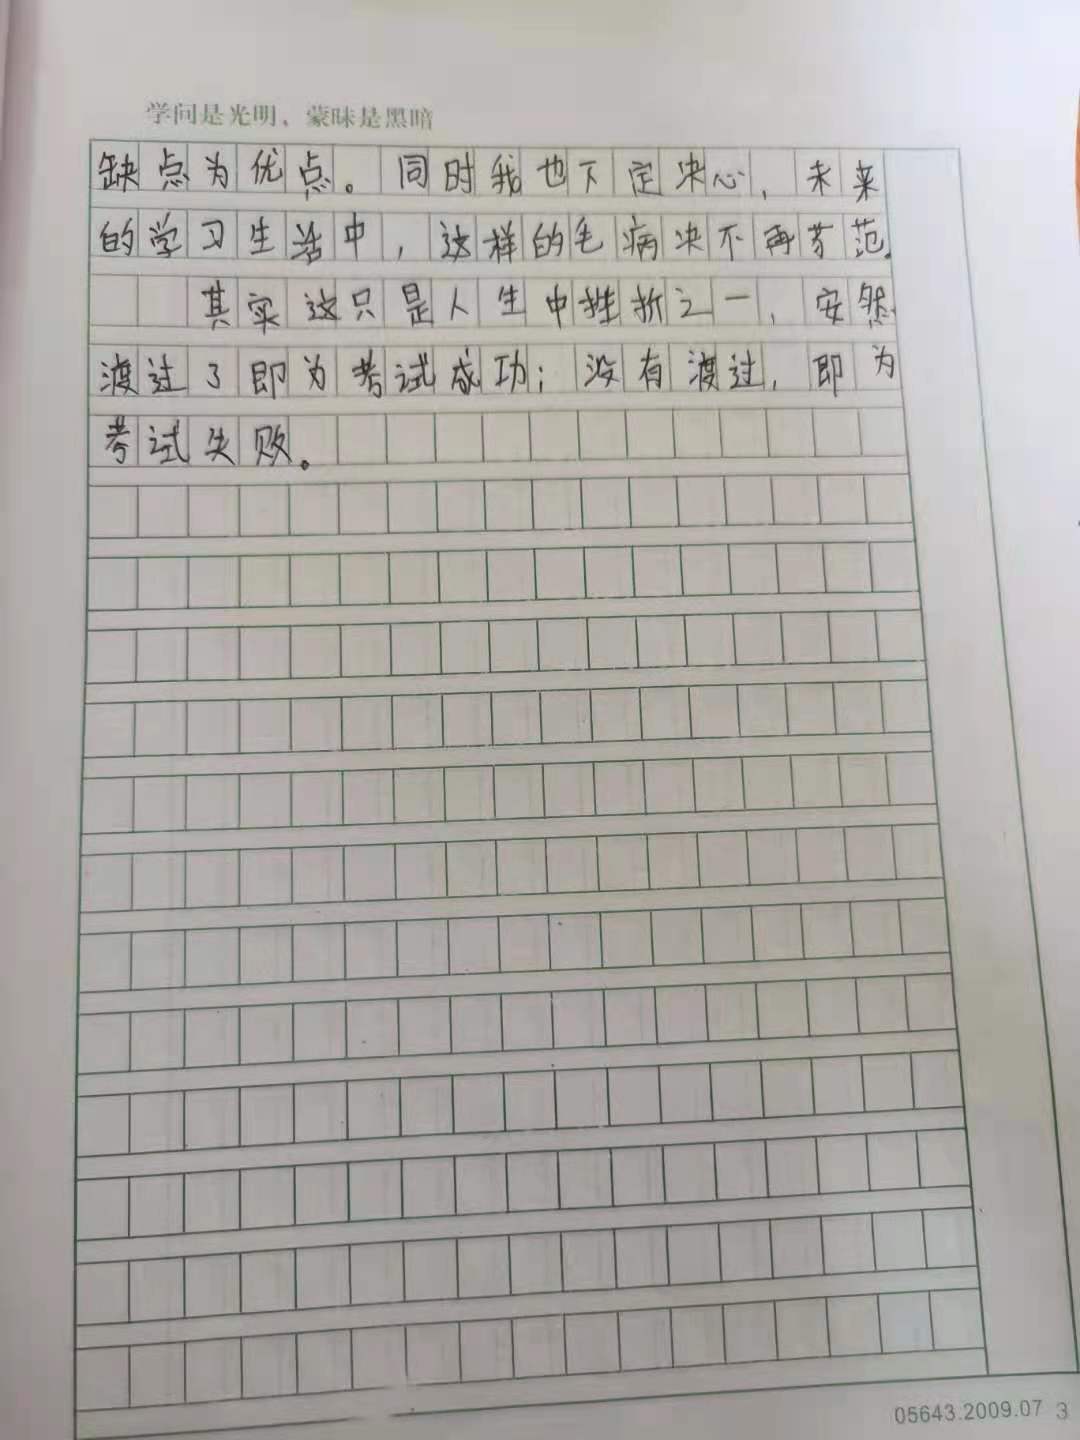 学问是光明、蒙昧是黑暗
缺点为优点。同时我也下定决心,未来
的学习生活中,这样的毛病决不再范.
其实这只是人生中挫折之一,安然
渡过了即为考试成功;没有渡过,即为
考试失败。
05643.2009.07 3